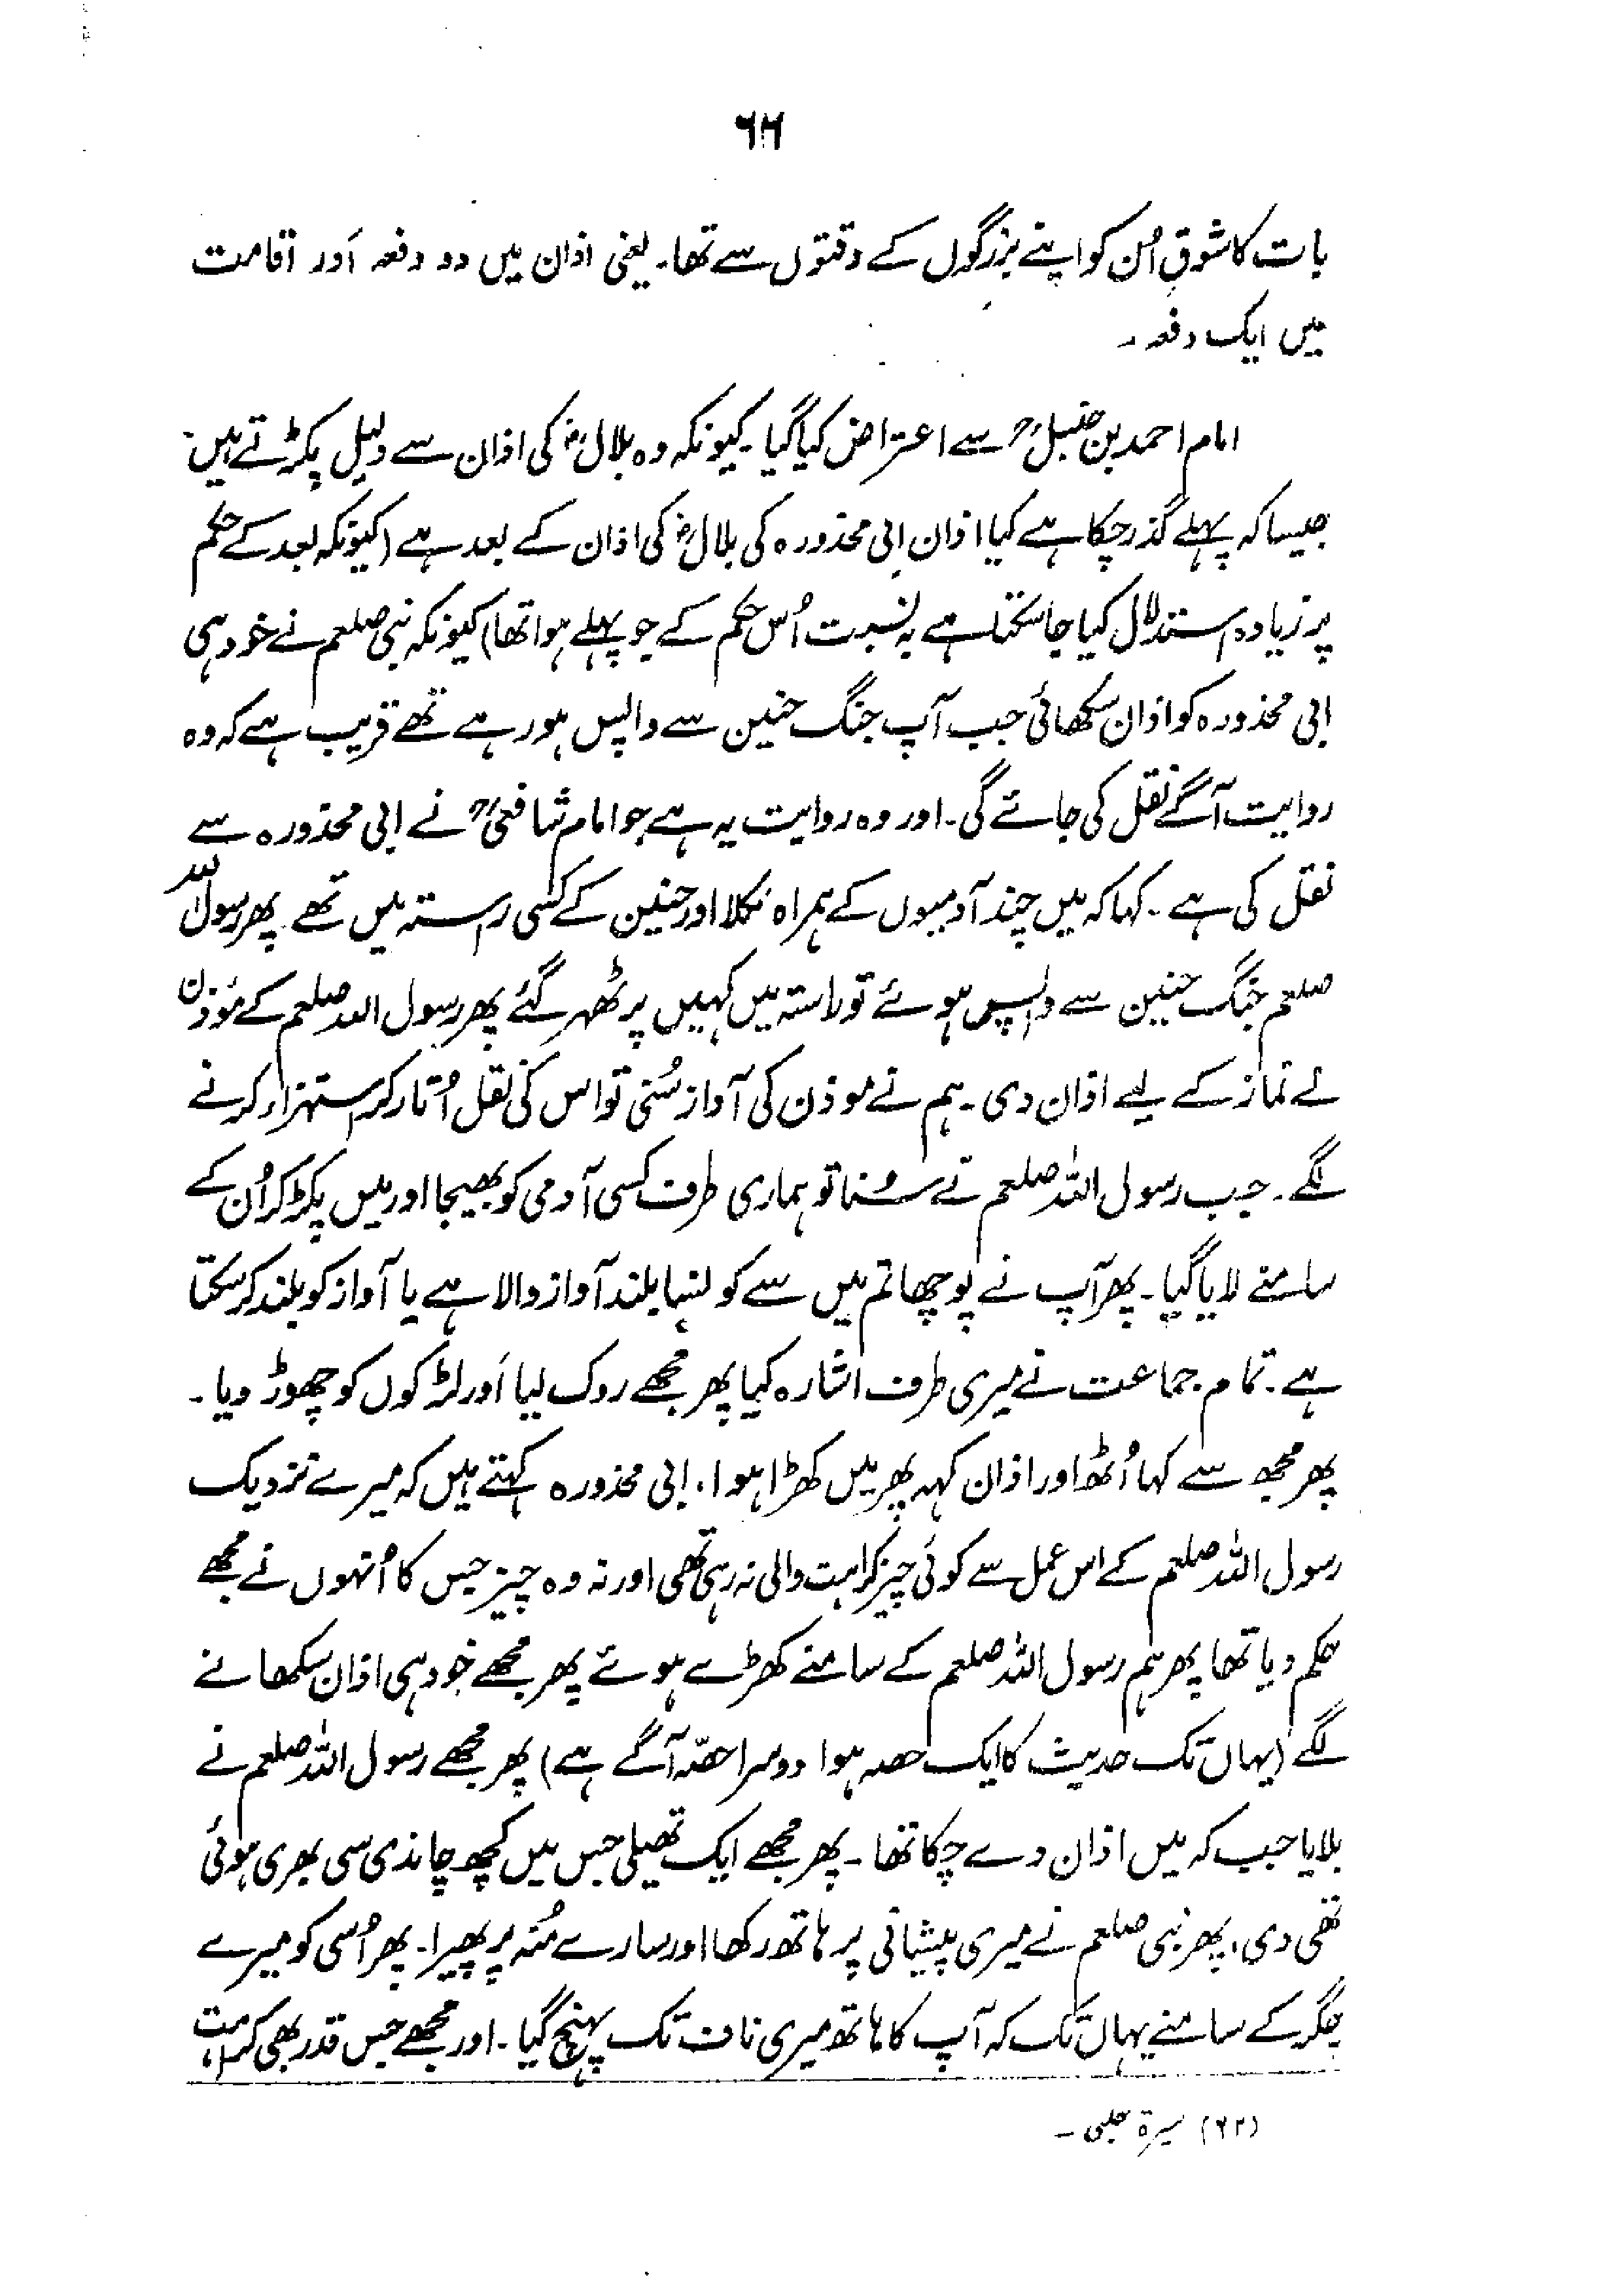 ۶۶
بات کا شوق اُن کو اپنے بزرگوں کے وقتوں سے تھا۔ یعنی اذان میں دو دفعہ اَور اقامت
میں ایک دفعہ۔
امام احمد بن حنبلؒ سے اعتراض کیا گیا۔ کیونکہ وہ بلالؓ کی اذان سے دلیل پکڑتے ہیں۔
جیسا کہ پہلے گذر چکا ہے کیا اذان ابی محذورہ کی بلالؓ کی اذان کے بعد ہے (کیونکہ بعد کے حکم
پر زیادہ استدلال کیا جا سکتا ہے بہ نسبت اُس حکم کے جو پہلے ہوا تھا) کیونکہ نبی صلعم نے خود ہی
ابی محذورہ کو اذان سکھائی جب آپ جنگ حنین سے واپس ہو رہے تھے قریب ہے کہ وہ
روایت آگے نقل کی جائے گی۔ اور وہ روایت یہ ہے جو امام شافعیؒ نے ابی محذورہ سے
نقل کی ہے۔ کہا کہ میں چند آدمیوں کے ہمراہ نکلا اور حنین کے کسی رستہ میں تھے پھر رسول اللہ
صلعم جنگ حنین سے واپس ہوئے تو راستہ میں کہیں پر ٹھہر گئے پھر رسول اللہ صلعم کے مؤذن
نے نماز کے لیے اذان دی۔ ہم نے موذن کی آواز سُنی تو اس کی نقل اُتار کر استہزاء کرنے
لگے۔ جب رسول اللہ صلعم نے سُنا تو ہماری طرف کسی آدمی کو بھیجا اور میں پکڑ کر اُن کے
سامنے لایا گیا۔ پھر آپ نے پوچھا تم میں سے کونسا بلند آواز والا ہے یا آواز کو بلند کر سکتا
ہے۔ تمام جماعت نے میری طرف اشارہ کیا پھر مجھے روک لیا اَور لڑکوں کو چھوڑ دیا۔
پھر مجھ سے کہا اُٹھ اور اذان کہہ پھر میں کھڑا ہوا۔ ابی محذورہ کہتے ہیں کہ میرے نزدیک
رسول اللہ صلعم کے اس عمل سے کوئی چیز کراہت والی نہ رہی تھی اور نہ وہ چیز جس کا اُنہوں نے مجھے
حکم دیا تھا پھر ہم رسول اللہ صلعم کے سامنے کھڑے ہوئے پھر مجھے خود ہی اذان سکھانے
لگے (یہاں تک حدیث کا ایک حصہ ہوا دوسرا حصّہ آگے ہے) پھر مجھے رسول اللہ صلعم نے
بلایا جب کہ میں اذان دے چکا تھا۔ پھر مجھے ایک تھیلی جس میں کچھ چاندی سی بھری ہوئی
تھی دی۔ پھر نبی صلعم نے میری پیشانی پر ہاتھ رکھا اور سارے مُنہ پر پھیرا۔ پھر اُسی کو میرے
جگر کے سامنے یہاں تک کہ آپ کا ہاتھ میری ناف تک پہنچ گیا۔ اور مجھے جس قدر بھی کراہت
(۶۲) سیرۃ حلبی۔